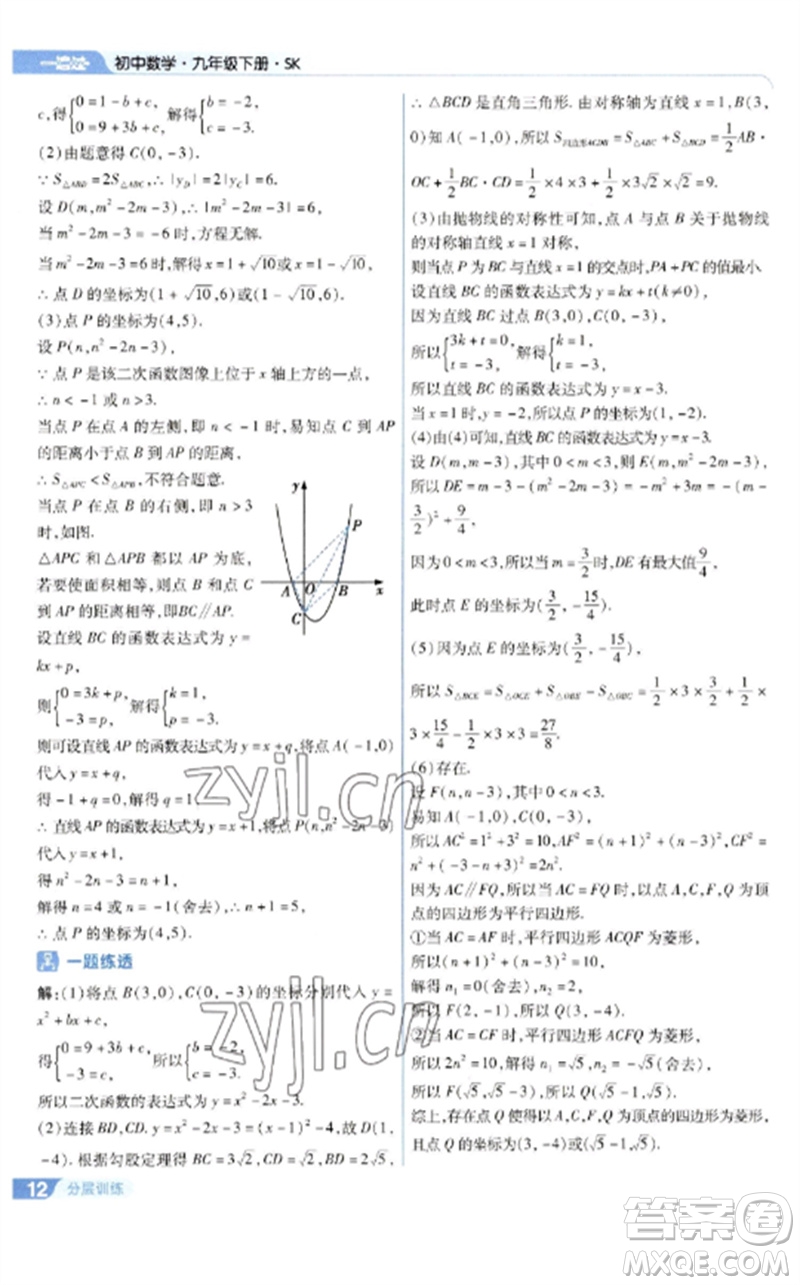 一遍过 初中数学·九年级下册·SK
c,得{0=1-b+c, 0=9+3b+c, 解得{b=-2, c=-3.
(2)由题意得C(0,-3).
∵S△ABD=2S△ABC,∴|yD|=2|yC|=6.
设D(m,m²-2m-3),∴|m²-2m-3|=6,
当m²-2m-3=-6时,方程无解.
当m²-2m-3=6时,解得x=1+√10或x=1-√10,
∴点D的坐标为(1+√10,6)或(1-√10,6).
(3)点P的坐标为(4,5).
设P(n,n²-2n-3),
∵点P是该二次函数图像上位于x轴上方的一点,
∴n<-1或n>3.
当点P在点A的左侧,即n<-1时,易知点C到AP
的距离小于点B到AP的距离,
∴S△APC<S△APB,不符合题意.
当点P在点B的右侧,即n>3
时,如图.
△APC和△APB都以AP为底,
若要使面积相等,则点B和点C
到AP的距离相等,即BC∥AP.
设直线BC的函数表达式为y=
kx+p,
则{0=3k+p, -3=p, 解得{k=1, p=-3.
y P A O B x C
则可设直线AP的函数表达式为y=x+q,将点A(-1,0)
代入y=x+q,
得-1+q=0,解得q=1,
∴直线AP的函数表达式为y=x+1,将点P(n,n²-2n-3)
代入y=x+1,
得n²-2n-3=n+1,
解得n=4或n=-1(舍去),∴n+1=5,
∴点P的坐标为(4,5).
一题练透
解:(1)将点B(3,0),C(0,-3)的坐标分别代入y=
x²+bx+c,
得{0=9+3b+c, -3=c, 所以{b=-2, c=-3.
所以二次函数的表达式为y=x²-2x-3.
(2)连接BD,CD.y=x²-2x-3=(x-1)²-4,故D(1,
-4).根据勾股定理得BC=3√2,CD=√2,BD=2√5,
∴△BCD是直角三角形.由对称轴为直线x=1,B(3,
0)知A(-1,0),所以S四边形ACDB=S△ABC+S△BCD=1/2AB·
OC+1/2BC·CD=1/2×4×3+1/2×3√2×√2=9.
(3)由抛物线的对称性可知,点A与点B关于抛物线
的对称轴直线x=1对称,
则当点P为BC与直线x=1的交点时,PA+PC的值最小.
设直线BC的函数表达式为y=kx+t(k≠0),
因为直线BC过点B(3,0),C(0,-3),
所以{3k+t=0, t=-3, 解得{k=1, t=-3,
所以直线BC的函数表达式为y=x-3.
当x=1时,y=-2,所以点P(1,-2).
(4)由(4)可知,直线BC的函数表达式为y=x-3,
设D(m,m-3),其中0<m<3,则E(m,m²-2m-3),
所以DE=m-3-(m²-2m-3)=-m²+3m=-(m-
3/2)²+9/4,
因为0<m<3,所以当m=3/2时,DE有最大值9/4,
此时点E的坐标为(3/2,-15/4).
(5)因为点E的坐标为(3/2,-15/4),
所以S△BCE=S△OCE+S△OBE-S△OBC=1/2×3×3/2+1/2×
3×15/4-1/2×3×3=27/8.
(6)存在.
设F(n,n-3),其中0<n<3.
易知A(-1,0),C(0,-3),
所以AC²=1²+3²=10,AF²=(n+1)²+(n-3)²,CF²=
n²+(-3-n+3)²=2n².
因为AC∥FQ,所以当AC=FQ时,以点A,C,F,Q为顶
点的四边形为平行四边形.
①当AC=AF时,平行四边形ACQF为菱形,
所以(n+1)²+(n-3)²=10,
解得n₁=0(舍去),n₂=2,
所以F(2,-1),所以Q(3,-4).
②当AC=CF时,平行四边形ACFQ为菱形,
所以2n²=10,解得n₁=-√5(舍去),n₂=√5,
所以F(√5,√5-3),所以Q(√5-1,√5).
综上,存在点Q使得以A,C,F,Q为顶点的四边形为菱形,
且点Q的坐标为(3,-4)或(√5-1,√5).
12 分层训练
zyjl.cn
zyjl.cn
答案圈
MXQE.COM